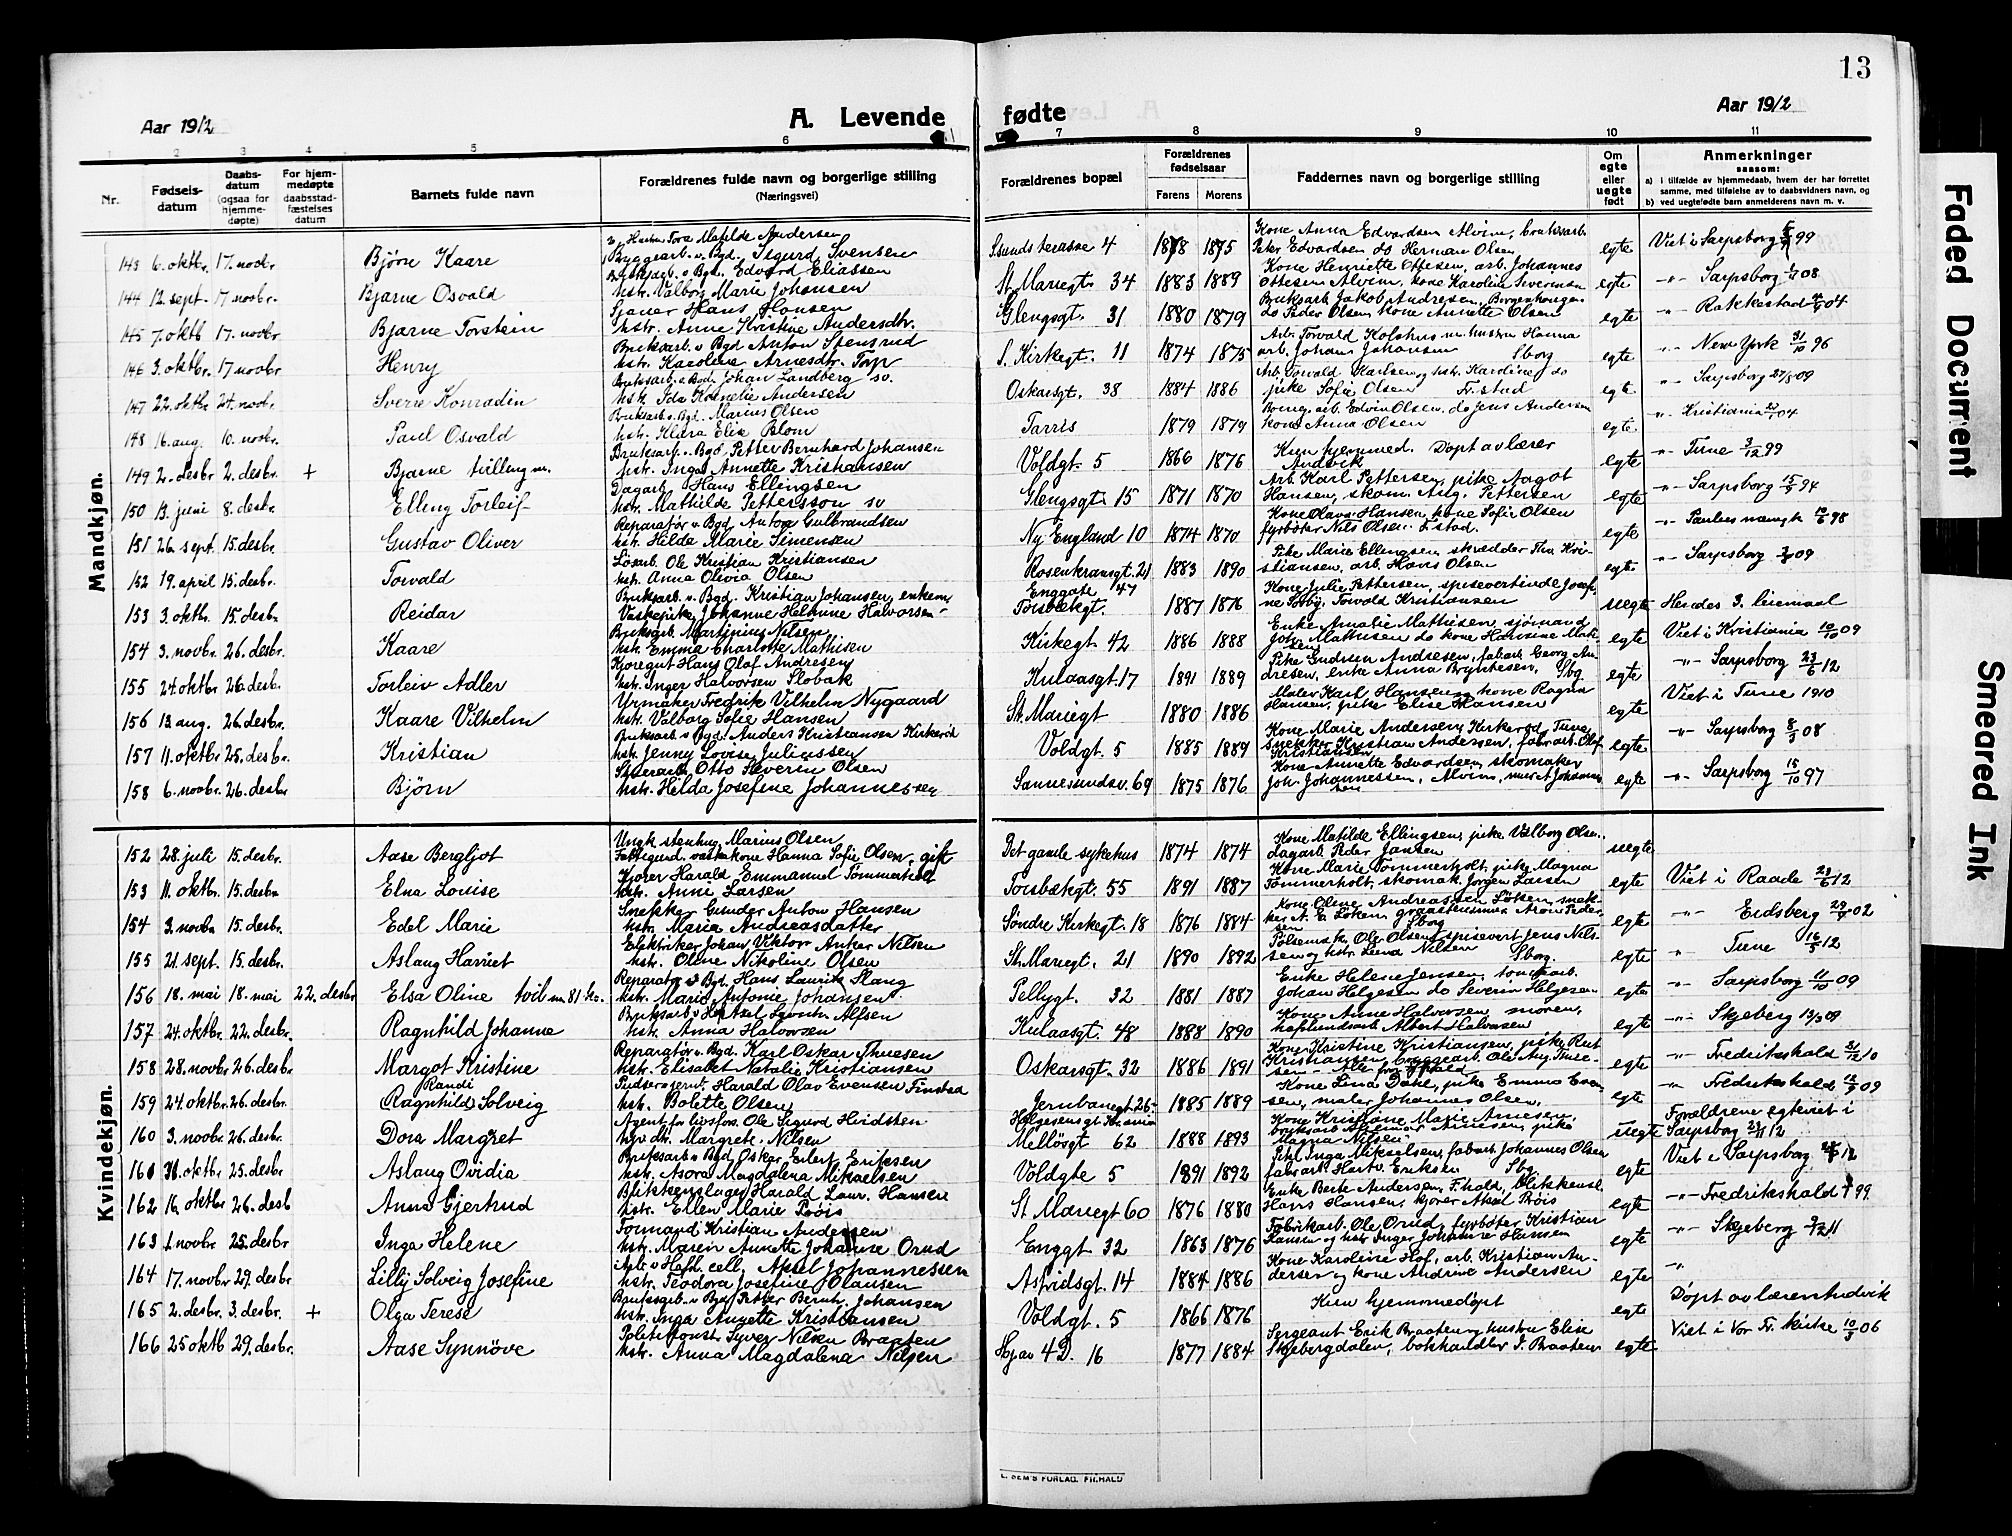 13
Aar 1912
A. Levende
fødte
Aar 1912
2 3 4 5 6 7 8 9 10 11
Nr.
Fødsels-datum
Daabs-datum (ogsaa for hjemme-døpte)
For hjem-medøpte daabsstad-fæstelses datum
Barnets fulde navn
Forældrenes fulde navn og borgerlige stilling (Næringsvei)
Forældrenes bopæl
Forældrenes fødselsaar
Farens Morens
Faddernes navn og borgerlige stilling
Om egte eller uegte født
Anmerkninger saasom:
a) i tilfælde av hjemmedaab, hvem der har forrettet samme, med tilføielse av to daabsvidners navn, og
b) ved uegtefødte barn anmelderens navn m. v.
Mandkjøn.
143 6. oktbr. 17. novbr Bjørn Kaare Byggearb. v. Bgd. Sigurd Svensen Hustru Tora Matilde Andersen 4 1878 1875 Kone Anna Edvardsen Alvim, bruksarb. Peter Edvardsen do Herman Olsen egte Viet i Sarpsborg 99
144 12. sept. 17. novbr. Bjarne Osvald Bruksarb. v. Bgd. Edvard Eliassen hstr. Valborg Marie Johansen St. Mariegt. 34 1883 1889 Kone Henriette Ottesen, arb. Johannes Ottesen Alvim, kone Karoline Syversen egte -"- Sarpsborg 08
145 7. oktb 17. novbr Bjarne Torstein Hans Hansen hstr. Anne Kristine Andersdtr. Glengsgt. 31 1880 1879 Bruksarb. Jakob Andresen, Borgenhaugen do Peder Olsen, kone Annette Olsen egte -"- Rakkestad 04
146 3. oktbr. 17 novbr Henry Bruksarb. v Bgd Anton Stensrud hstr. Karoline Arnesdtr. Torp S. Kirkegt. 11 1874 1875 Arb. Torvald Kolshus m. hustru Hanna arb. Johan Johansen Sborg egte -"- New York 31/10 96
147 22. oktbr 24. novbr. Sverre Konradin Bruksarb. v. Bgd. Johan Landberg sv. hstr. Ida Kornelie Andersen Oskarsgt. 38 1884 1886 Arb. Torvald Karlsen og hstr. Kardine do pike Sofie Olsen Fr.stad egte -"- Sarpsborg 27/5 09
148 16. aug. 10. novbr. Paul Osvald Bruksarb. v. Bgd. Marius Olsen hstr. Klara Elise Blom Tarris 1879 1879 arb. Edvin Olsen, do Jens Andersen kone Anna Olsen egte -"- Kristiania 04
149 2. desbr 2. desbr. + Bjarne tvilling m. Bruksarb. v. Bgd Petter Bernhard Johansen hstr. Inga Annette Kristiansen Voldgt. 5 1866 1876 Kun hjemmed. Døpt av lærer Andvik egte -"- Tune 3/12 99
150 13. juni 8. desbr. Elling Torleif Dagarb Hans Ellingsen hstr. Mathilde Pettersson sv Glengsgt. 15 1871 1870 Arb. Karl Pettersen, pike Aagot Hansen, skom. Aug. Pettersen egte -"- Sarpsborg 15/9 94
151 26. sept. 15. desbr. Gustav Oliver Reparatør v. Bgd. Anton Gulbrandsen hstr. Hilda Marie Simensen Ny England 10 1874 1870 Kone Olava Hansen, kone Sofie Olsen fyrbøter Nils Olsen. F.stad. egte -"- Paulus mængk 10/6 98
152 19. april 15. desbr. Torvald Løsarb. Ole Kristian Kristiansen hstr. Anna Olivia Olsen Rosenkransgt. 21 1883 1890 Pike Marie Ellingsen, skrædder Tha Kristiansen, arb. Hans Olsen egte -"- Sarpsborg 09
153 3. oktbr. 15. desbr. Reidar Bruksarb. v. Bgd. Kristian Johansen, enkem Vaskepike Johanne Helmine Halvorsen Enggate 47 Torsbækgt. 1887 1876 Kone Julie Pettersen, spisevertinde Josefine Torvald Kristiansen uegte Hendes 3. leiemaal
154 3. novbr. 26. desbr. Kaare Bruksarb. Martinius Nilsen hstr. Emma Charlotte Mathisen Kirkegt 42 1886 1888 Enke Amalie Mathisen, sjømand Joh. Mathisen do kone Hansine Mathisen egte Viet i Kristiania 10/10 09
155 24. oktbr 26. desbr. Torleiv Adler Kjøregut Hans Olaf Andresen hstr. Inger Halvorsen Slobak Kulaasgt. 17 1891 1889 Pike Gudrun Andresen, fabarb. Georg Andresen, enke Anna Brynhesen, S/bg egte -"- Sarpsborg 23/6 12
156 13. aug. 26. desbr. Kaare Vilhelm Urmaker Fredrik Vilhelm Nygaard hstr. Valborg Sofie Hansen St. Mariegt 1880 1886 Maler Karl Hansen og kone Ragna Hansen, pike Elise Hansen egte Viet i Tune 1910
157 11. oktbr 25. desbr. Kristian Bruksarb. v. Bgd. Anders Kristiansen Kirkerød hstr. Jenny Lovise Juliussen Voldgt. 5 1885 1889 Kone Marie Andersen, Kirkerød, Tune, snekker Kristian Andersen, fabr.arb. Olaf Kristiansen egte -"- Sarpsborg 8/5 08
158 6. novbr. 26. desbr Bjørn Otto Severin Olsen hstr. Hilda Josefine Johannessen Sannesundsv. 69 1875 1876 Kone Annette Edvardsen, skomaker Joh. Johannessen, Alvim, murer A Johannessen egte -"- Sarpsborg 15/10 97
Kvindekjøn.
152 28. juli 15. desbr. Aase Bergljot Ungk. stenhug. Marius Olsen Fattigund. vaskekone Hanna Sofie Olsen, gift Det gamle sykehus 1874 1874 Kone Matilde Ellingsen, pike Valborg Olsen, dagarb. Peder Jansen uegte
153 11. oktbr. 15. desbr Elna Louise Kjører Harald Emmanuel Tømmerholt hstr. Anne Larsen Torsbækgt. 55 1891 1887 Kone Marie Tømmerholt, pike Magna Tømmerholt, skomak. Jørgen Larsen egte Viet i Raade 23/6 12
154 3. novbr 15. desbr. Edel Marie Snekker Gunder Anton Hansen hstr. Maria Andreasdatter Søndre Kirkegt. 18 1876 1884 Kone Oline Andreassen Løken, snekker A. E. Løken, Aron Pedersen Sborg egte -"- Eidsberg 02
155 21. sept. 15. desbr. Aslaug Harriet Elektriker Johan Viktor Anker Nilsen hstr. Oline Nikoline Olsen St. Mariegt. 21 1890 1892 Pølsemak. Ole Olsen, spisevert Jens Nilsen og hstr. Lina Nilsen Sborg. egte " Tune 16/5 12
156 18. mai 18. mai 22. desbr Elsa Oline tvil m. 81 Reparatør v Bgd. Hans Laurits Slang hstr. Marie Antonie Johansen Pellygt. 32 1881 1887 Enke Helene Jensen, tomtearb. Johan Helgesen do Severin Helgesen egte -"- Sarpsborg 11/10 09
157 24. oktbr 22. desbr. Ragnhild Johanne Bruksarb. v Axel Alfsen hstr. Anna Halvorsen Kulaasgt. 48 1888 1890 Kone Anne Halvorsen, moren, hafslundsarb. Albert Halvorsen egte -"- Skjeberg 13/3 09
158 28. novbr 26. desbr. Margot Kristine Reparatør v. Bgd. Karl Oskar Thuesen hstr. Elisabet Natalie Kristiansen Oskarsgt. 32 1886 1891 Kone Kristine Kristiansen, pike Rut Kristiansen, byggearb. Ole Aug. Thuesen - Alle fra egte -"- Fredrikshald 31/12 10
159 24. oktbr. 26. desbr. Randi Ragnhild Solveig Pudsersgent. Harald Olav Evensen Finstad hstr. Bolette Olsen Jernbanegt 26 1885 1889 Kone Lina Dahl, pike Emma Evensen, maler Johannes Olsen. egte " Fredrikshald 12/9 09
160 3. novbr. 26. desbr. Dora Margret Agent for livsfors. Ole Sigurd Hvidsten Ugv dtr. Margrete Nilsen Helgesensgt Kr.ania Melløsgt 62 1888 1893 Kone Kristiane Marie Arnesen, bruksarb. Arnesen, pike Magna Nilsen. uegte Forældrene egteviet i Sarpsborg 12
161 31. oktbr 25. desbr. Aslaug Ovidia Bruksarb v Bgd Oskar Edert Eriksen hstr. Asora Magdalena Mikaelsen Voldgte 5 1891 1892 Pike Inga Mikaelsen, fabarb. Johannes Olsen fabrarb. Hartv. Eriksen Sbg. egte Viet i Sarpsborg 12
162 16. oktbr 26. desb Anna Gjertrud Blikkenslager Harald Laur. Hansen hstr. Ellen Marie Røis St Mariegt 60 1876 1880 Enke Berte Andersen, F.hald, blikkensl. Hans Hansen, kjører Aksel Røis egte -"- Fredrikshald 99
163 1 novbr. 25. desbr Inga Helene Formand Kristian Andersen hstr. Maren Annette Johanne Orud Enggt 32 1863 1876 Fabrikarb. Ole Orud, fyrbøter Kristian Hansen og hstr Inger Johanne Hansen egte -"- Skjeberg 11
164 17. novbr 29. desbr Lilly Solveig Josefine Arb. v Hafsl. cell. Aksel Johannessen hstr. Teodora Josefine Olausen Astridsgt. 14 1884 1886 Kone Karoline Hof, arb. Kristian Andersen og kone Andrine Andersen egte "
165 2. desbr. 3. desbr. + Olga Terese Bruksarb. v Bgd Petter Bernh. Johansen hstr. Inga Annette Kristiansen Voldgt. 5 1866 1876 Kun hjemmedøpt egte Døpt av lærer Andvik
166 25 oktb 29. desbr. Aase Synnøve Politikonst. Syver Nilsen Braaten hstr. Anna Magdalena Nilsen 4 D. 16 1877 1884 Sergeant Erik Braaten og hustru Elise Skjebergdalen, bokhandler J. Braaten egte Viet i Vor Fr. kirke 10/5 06
E. SEM'S FORLAG, FR.HALD
Faded Document
Smeared Ink